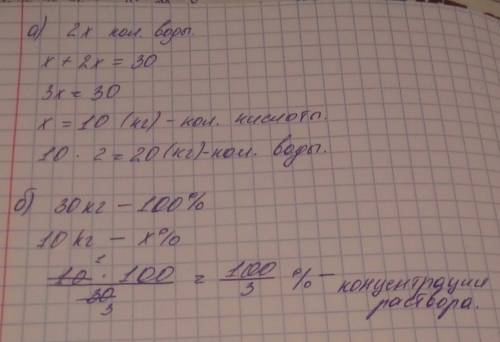 а) 2х кол. воды.
х + 2х = 30
3х = 30
х = 10 (кг) - кол. кислоты.
10 · 2 = 20 (кг) - кол. воды.
б) 30 кг - 100%
10 кг - х%
10 1 · 100 / 30 3 = 100/3 % - концентрации
раствора.